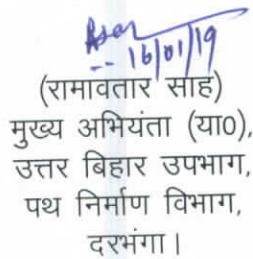 16/01/19
(रामावतार साह)
मुख्य अभियंता (या0),
उत्तर बिहार उपभाग,
पथ निर्माण विभाग,
दरभंगा।